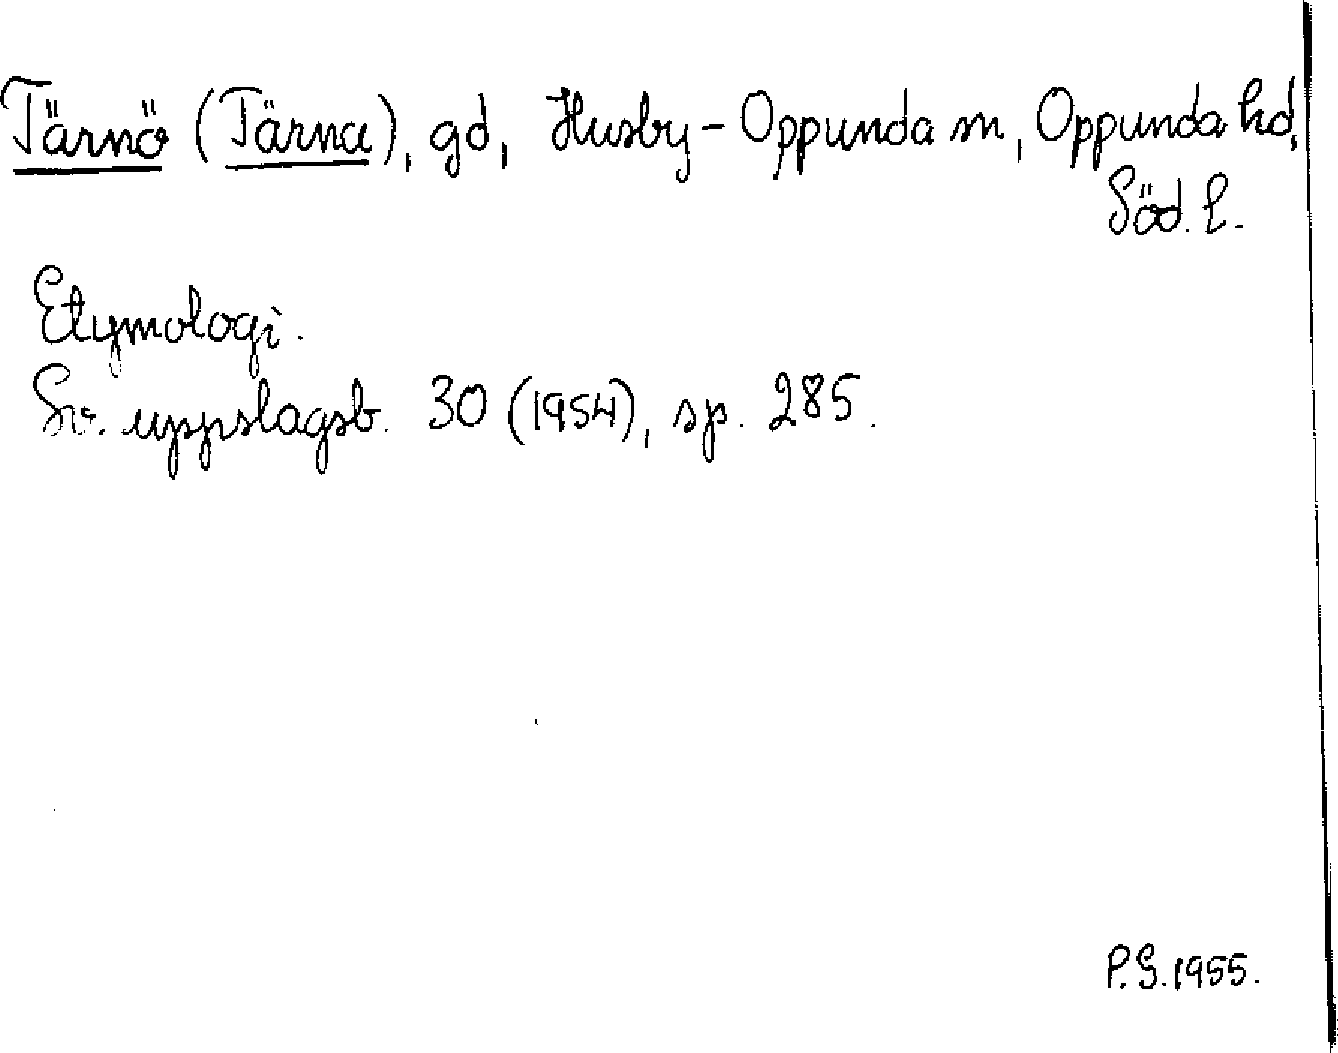 Tärnö (Tärna), gd, Husby-Oppunda sn, Oppunda hd,
Söd. l.
Etymologi.
Sv. uppslagsb. 30 (1954), sp. 285.
P.S. 1955.